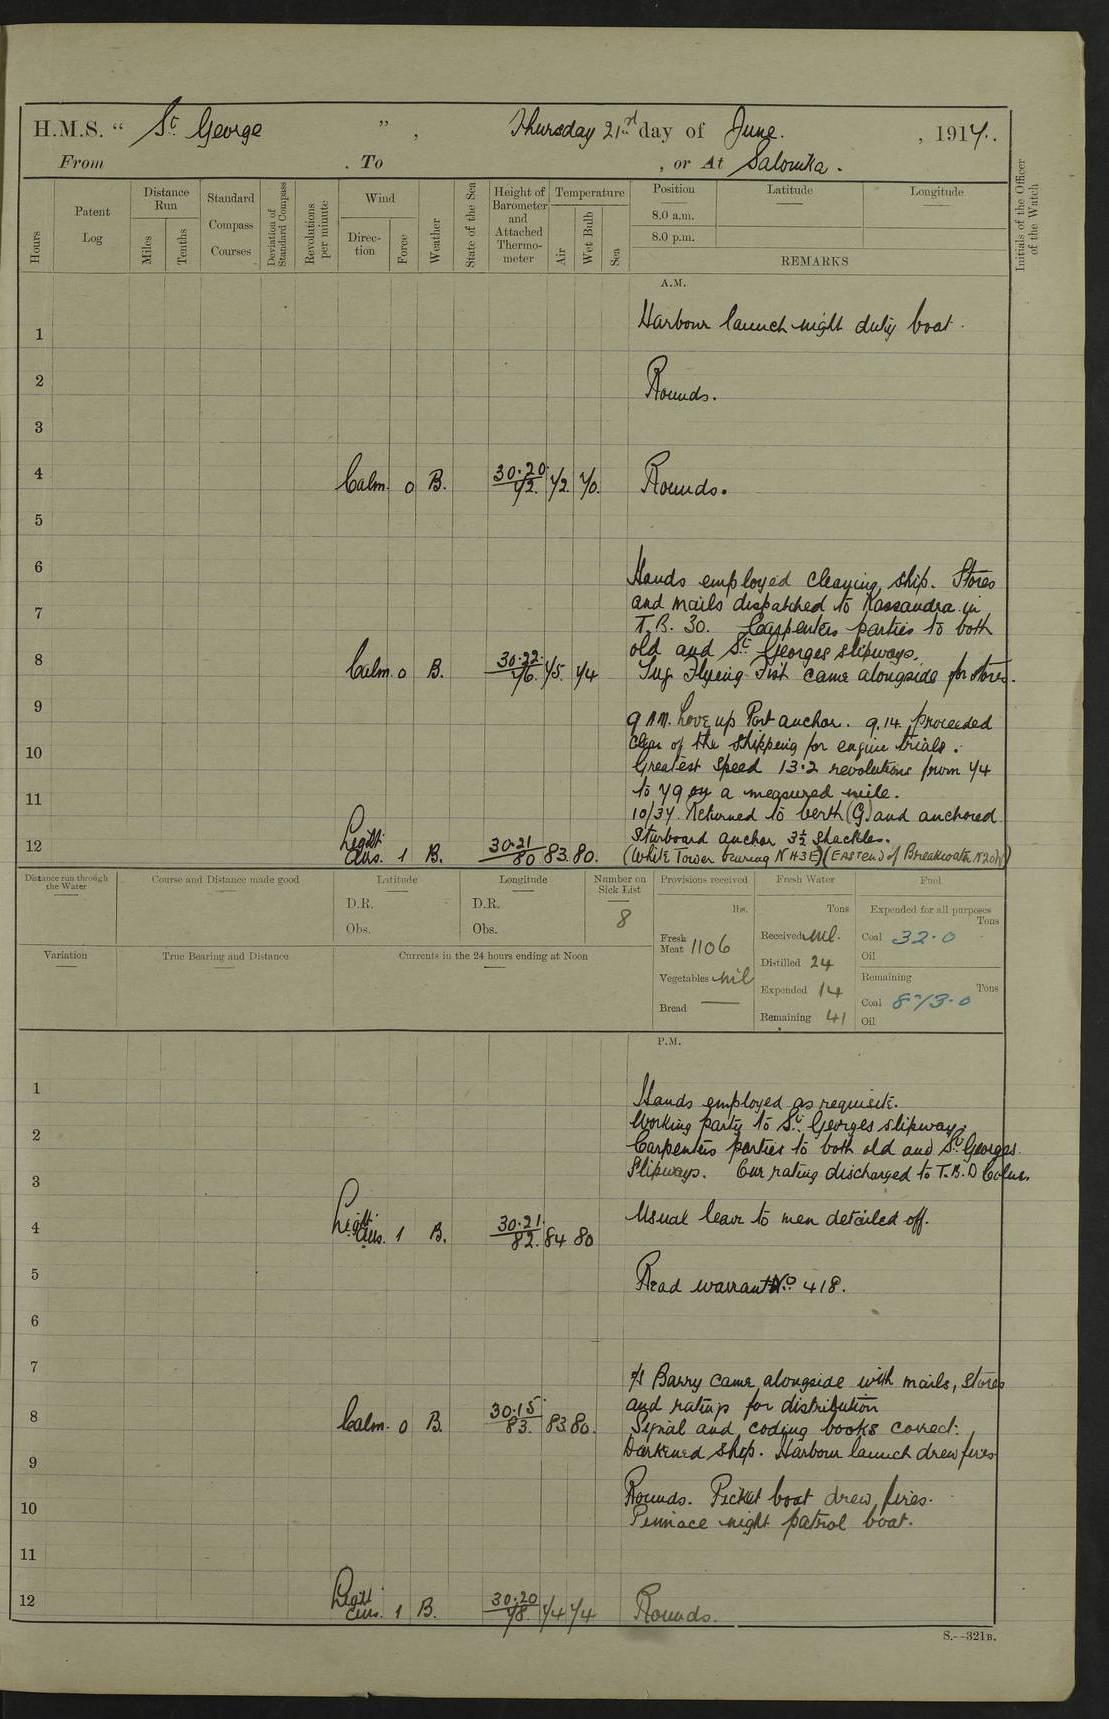 H.M.S. “ St. George ” , Thursday 21st day of June. , 1917.
From . To , or At Salonika.
Hours
Patent Log
Distance Run
Miles
Tenths
Standard Compass Courses
Deviation of Standard Compass
Revolutions per minute
Wind
Direction
Force
Weather
State of the Sea
Height of Barometer and Attached Thermometer
Temperature
Air
Wet Bulb
Sea
Position
Latitude
Longitude
8.0 a.m.
8.0 p.m.
REMARKS
Initials of the Officer of the Watch
A.M.
1 Harbour launch night duty boat.
2 Rounds.
3
4 Calm. 0 B. 30.20/72. 72. 70. Rounds.
5
6 Hands employed cleaning ship. Stores
and mails dispatched to Kassandra in
7 T.B. 30. Carpenters parties to both
old and St. Georges slipways.
8 Calm. 0 B. 30.22/76. 75. 74 Tug Flying Fish came alongside for stores.
9 9 AM. hove up Port anchor. 9.14 proceeded
clear of the shipping for engine trials.
10 Greatest speed 13.2 revolutions from 74
11 to 79 on a measured mile.
10/37. Returned to berth (G) and anchored
Starboard anchor 3½ shackles.
12 Light airs. 1 B. 30.21/80 83. 80. (White Tower bearing N 43 E) (East end of Breakwater N20W)
Distance run through the Water
Course and Distance made good
Latitude
D.R.
Obs.
Longitude
D.R.
Obs.
Number on Sick List
8
Provisions received
lbs.
Fresh Meat 1106
Vegetables nil
Bread —
Fresh Water
Tons
Received nil.
Distilled 24
Expended 14
Remaining 41
Fuel
Expended for all purposes
Tons
Coal 32.0
Oil
Remaining
Tons
Coal 873.0
Oil
Variation
True Bearing and Distance
Currents in the 24 hours ending at Noon
P.M.
1 Hands employed as requisite.
Working party to St. Georges slipway.
2 Carpenters parties to both old and St. Georges
3 Slipways. One rating discharged to T.B.D Colne.
4 Light airs. 1 B. 30.21/82. 84 80 Usual leave to men detailed off.
5 Read warrant No. 418.
6
7 s/s Barry came alongside with mails, stores
and ratings for distribution
8 Calm. 0 B. 30.15/83. 83. 80. Signal and coding books correct.
Darkened ship. Harbour launch drew fires
9
Rounds. Picket boat drew fires.
10 Pinnace night patrol boat.
11
12 Light airs. 1 B. 30.20/78 74 74 Rounds.
S.—321B.